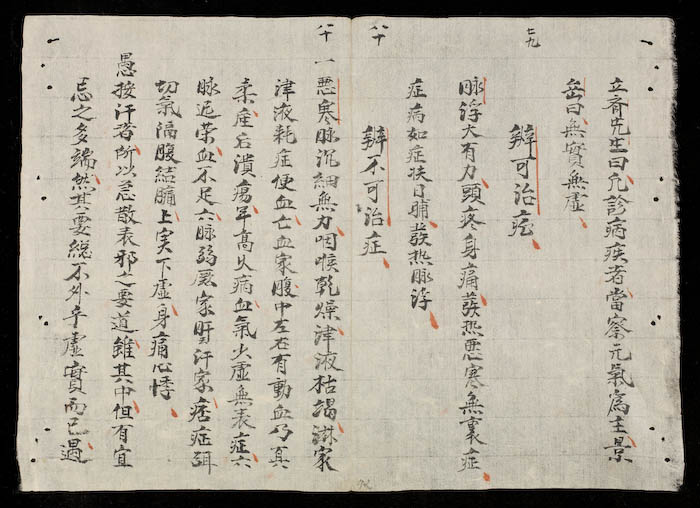 立斉先生曰凢診病疾者當察元氣爲主景
岳曰無實無虛
七九
辨可治症
脉浮大有力頭疼身痛發热悪寒無裏症
症病如症状日晡發热脉浮
八十
辨不可治症
八十
一悪寒脉沉細無力咽喉乾燥津液枯竭淋家
津液耗症便血亡血家腹中左右有動血乃真
柔産后潰瘍年髙久病血氣火虛無表症六
脉迟荣血不足六脉弱厥家肝汗家痞症弭
切氣隔腹結腑上実下虛身痛心悸
愚按汗者所以怠散表邪之要道雖其中但有宜
忌之多端然其要総不外乎虛實而已過